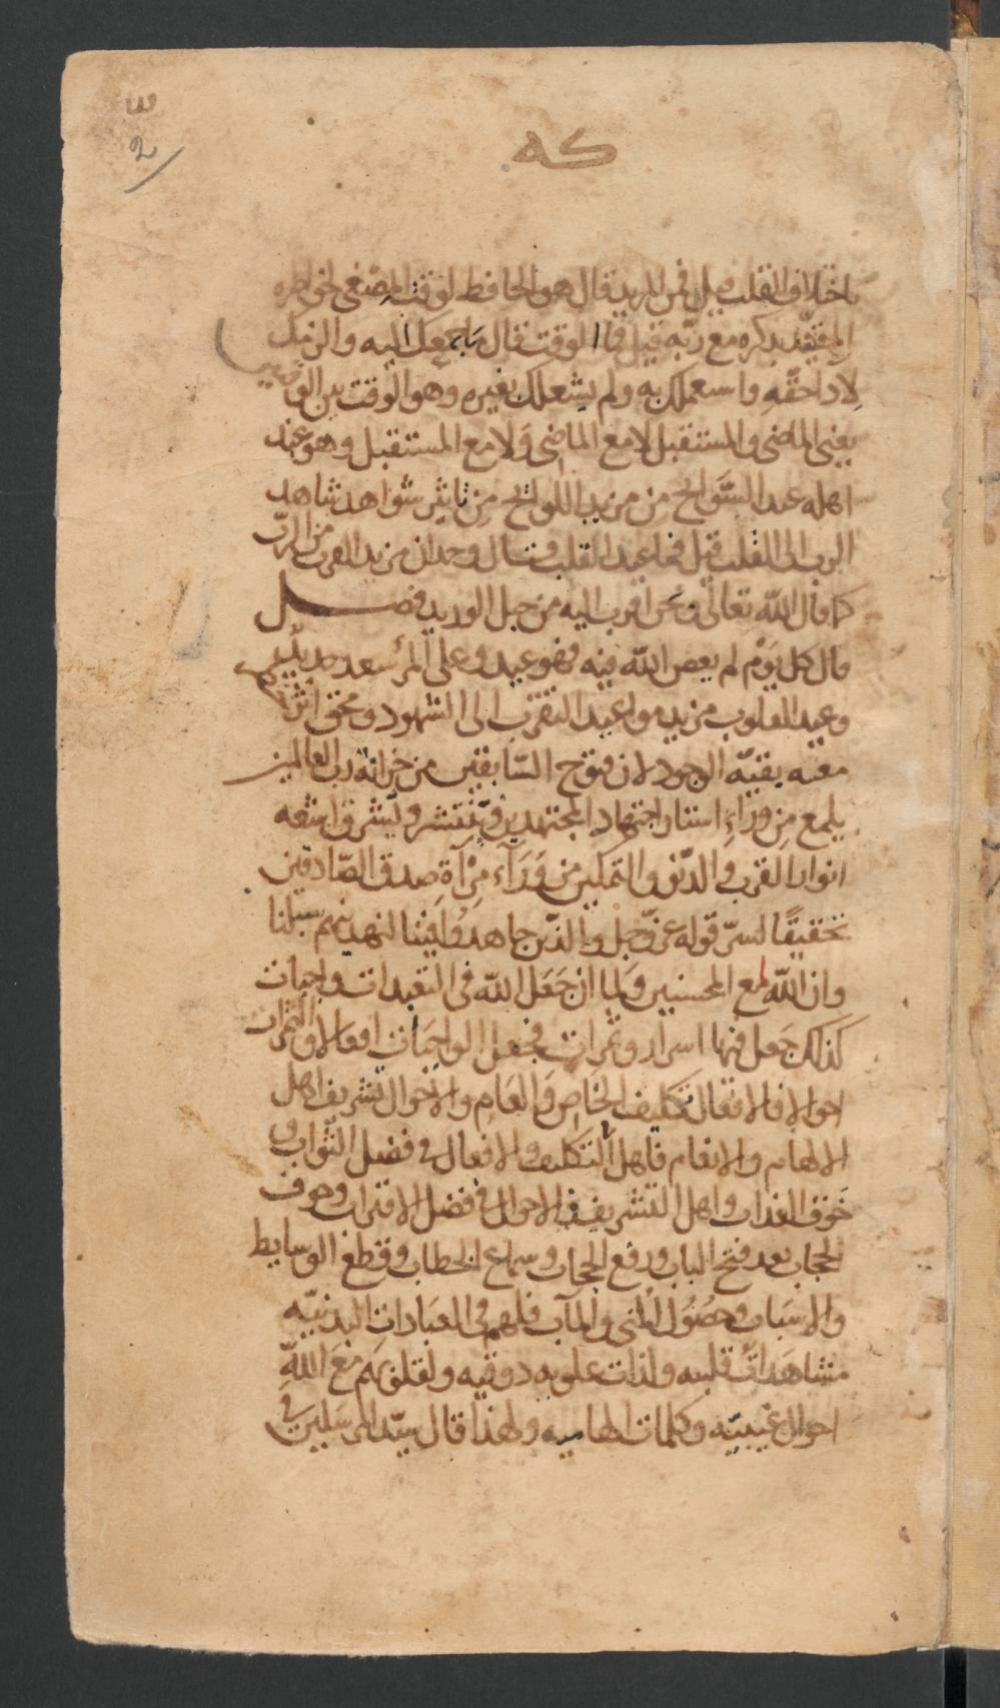 2
كه
باختلاف القلب قيل فمن المريد قال هو الحافظ لوقت المصغي لخواطره
المقيد بذكره مع ربه قيل فما الوقت فقال ما جعلك اليه والزمك
لاداحقه واستعملك به ولم يشغلك بغيره وهو الوقت بين الوقتين
يعني الماضي والمستقبل لا مع الماضي ولا مع المستقبل وهو عند
اهله عند السوائح من مزيد اللوائح من تاثير شواهد شاهد
الرب الى القلب قيل فما عيد القلب قال وجدان مزيد القرب من الرب
كما قال الله تعالى ونحن اقرب اليه من حبل الوريد فصل
قال كل يوم لم يعص الله فيه فهو عيد وعلى المرء
وعيد القلوب مزيد مواعيد التقرب الى الشهود ومحق اثر
بقية الوجود لان فتوح السابقين من خزانة رب العالمين
يلمع من وراء استار اجتهاد المجتهدين وينتشر ويشرق اشعه
انوار القرب والدنو والتمكين من وراء مرآة صدق الصادقين
تحقيقًا لسر قوله عز وجل والذين جاهدوا فينا لنهدينهم سبلنا
وان الله لمع المحسنين ولما ان جعل الله في التعبدات واجبات
كذلك جعل فيها اسرار وثمرات فجعل الواجبات افعالا والثمرات
احوالا فالافعال تكليف الخاص والعام والاحوال تشريف اهل
الالهام والانعام فاهل التكليف والافعال في فضل الثواب و
خوف العذاب واهل التشريف في الاحوال في فضل الاقتراب وخوف
الحجاب بعد فتح الباب ورفع الحجاب وسماع الخطاب وقطع الوسايط
والاسباب وحصول المنى والمآب فلهم في العبادات البدنيه
مشاهدات قلبيه ولذات علويه ذوقيه ولقلوبهم مع الله
احوال غيبيه وكلمات الهاميه ولهذا قال سيد المرسلين في